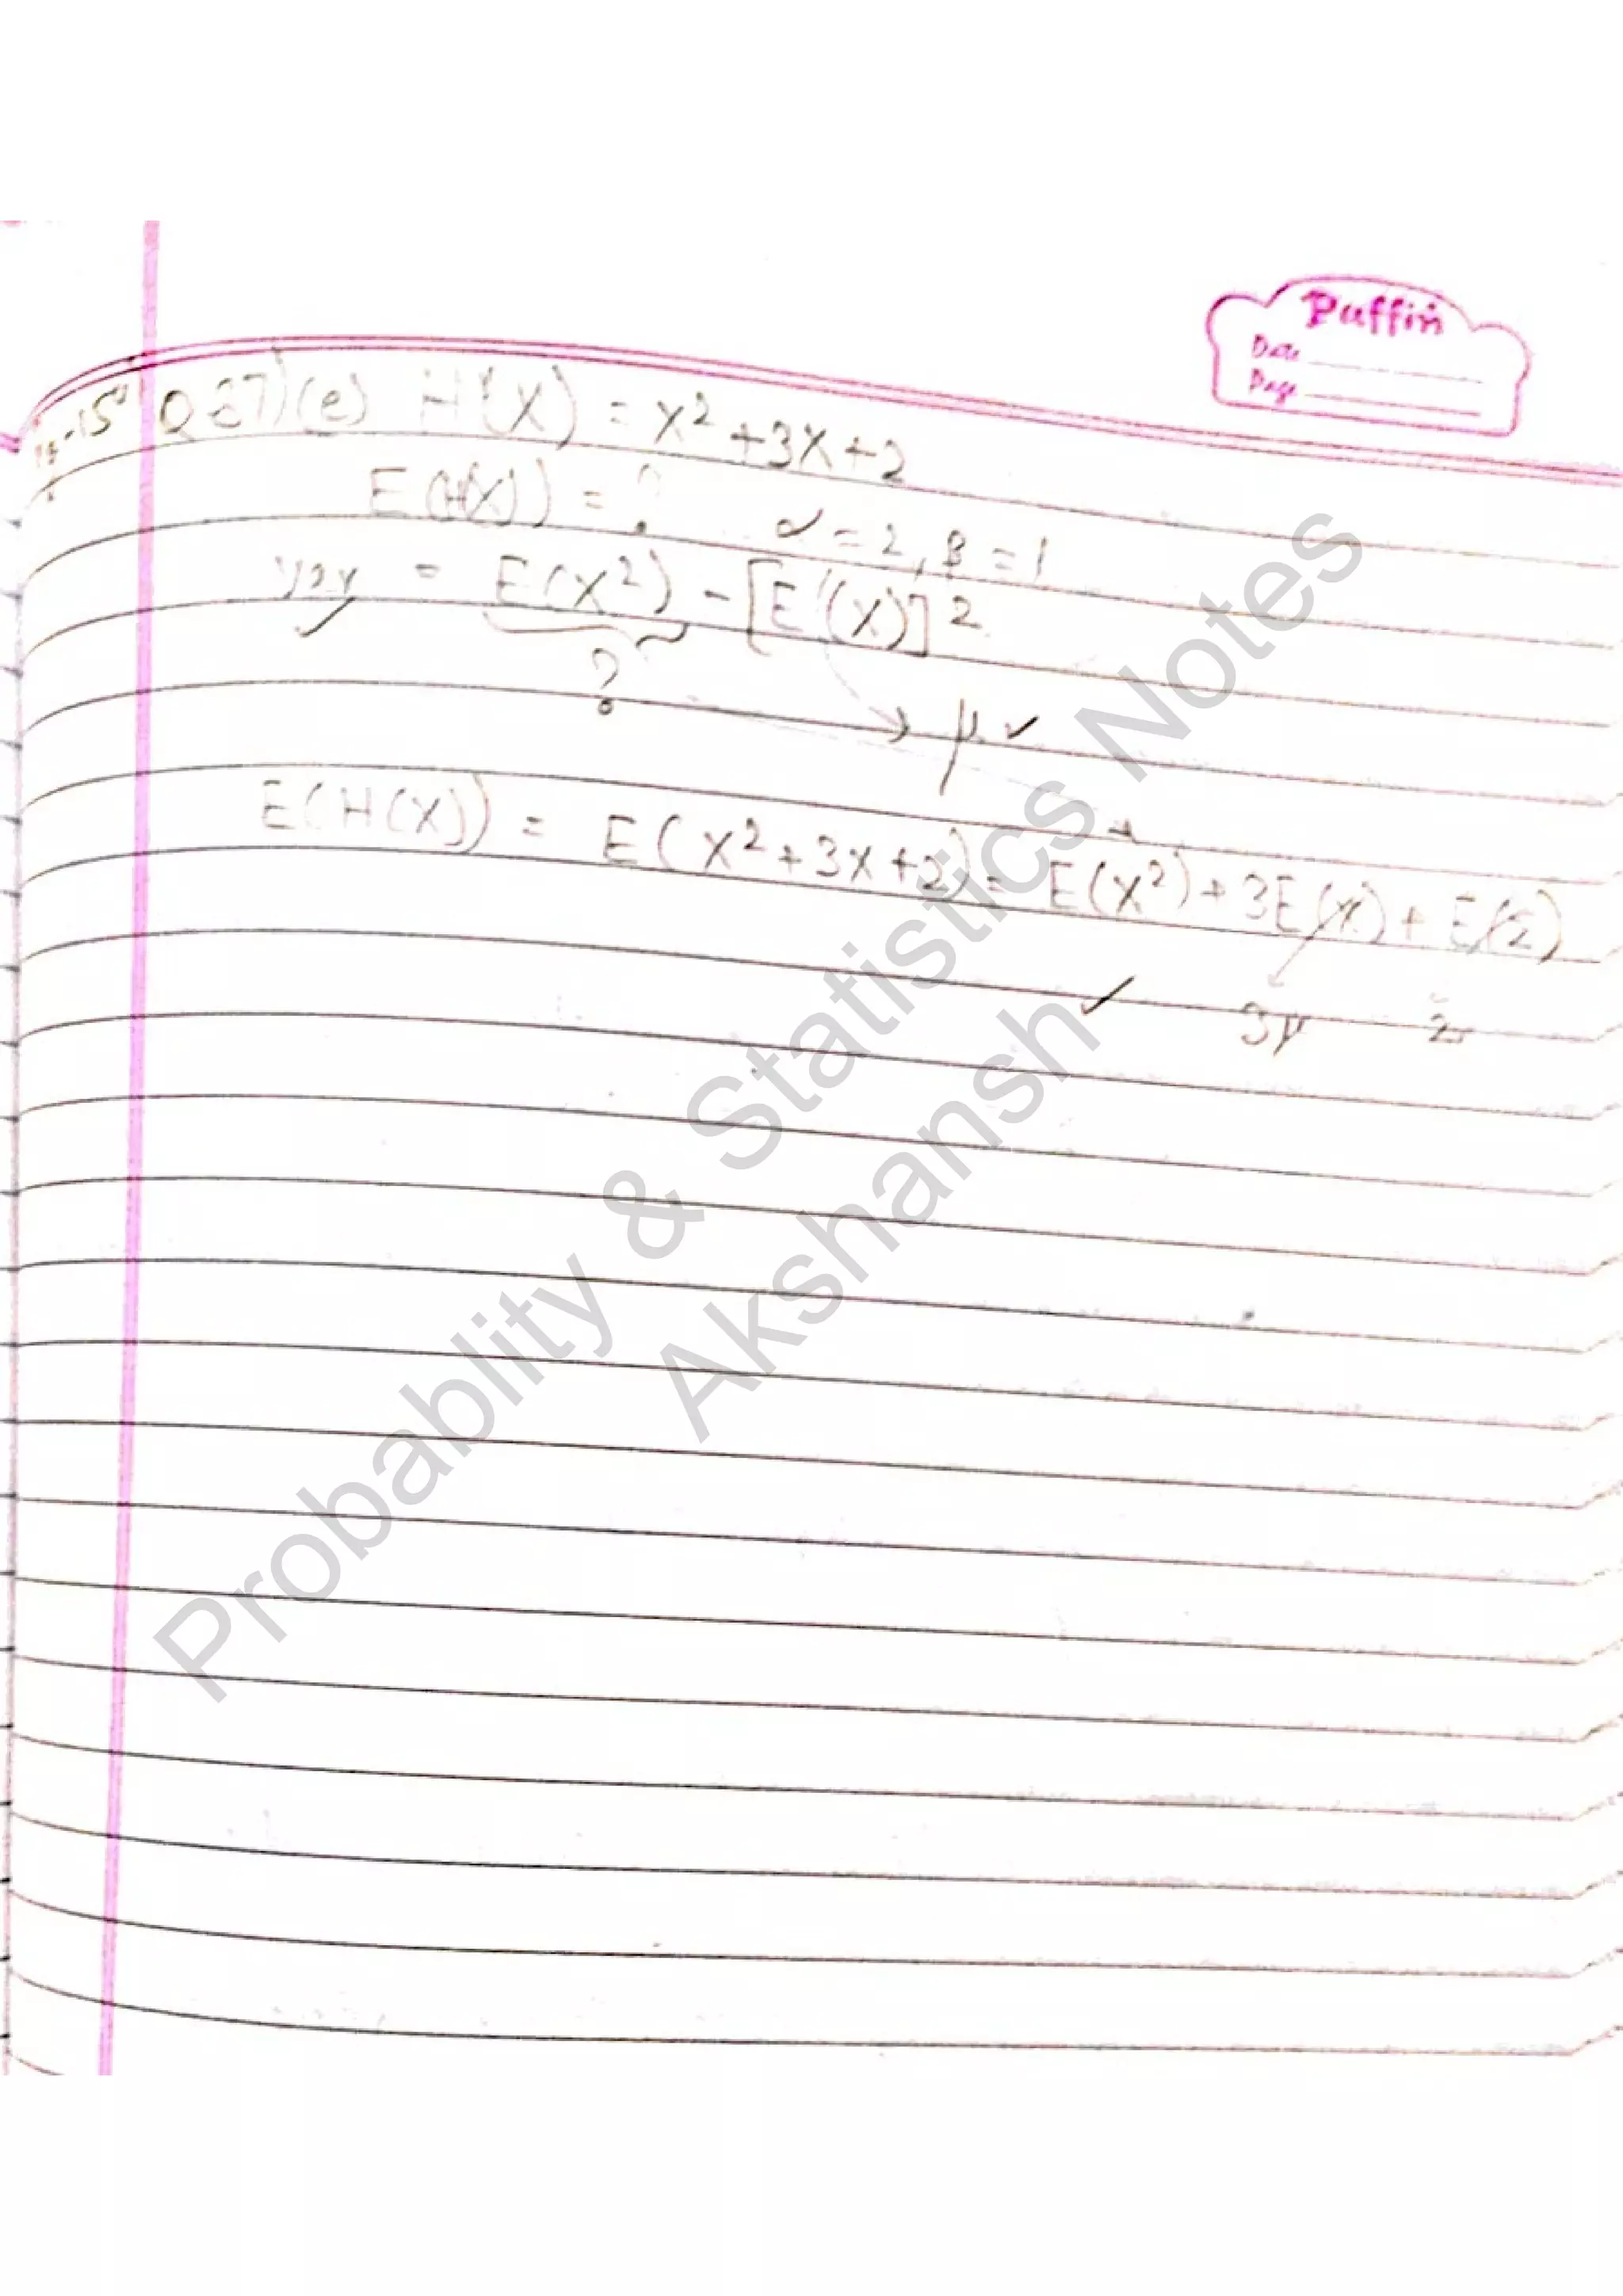 Puffin
Date
Page
Q 37) (e) H(X) = X² + 3X + 2
E(H(X)) = ? α = 2, β = 1
= E(X²) - [E(X)]²
? → μ ✓
E(H(X)) = E(X² + 3X + 2) = E(X²) + 3E(X) + E(2)
✓ 3μ 2
Probablity & Statistics Notes
Akshansh